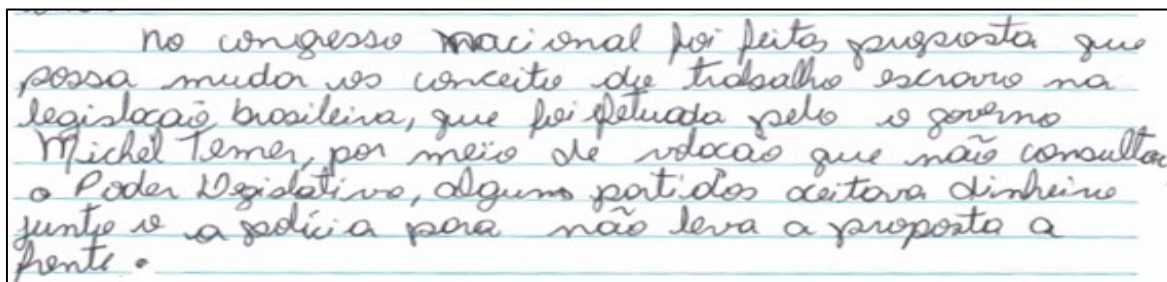 no congresso nacional foi feitas proposta que
possa mudar os conceito de trabalho escravo na
legislacaão brasileira, que foi fetuada pelo o governo
Michel Temer, por meio de votocão que não consultou
o Poder Legislativo, alguns partidos aceitava dinheiro
junto o a polícia para não leva a proposta a
frente.